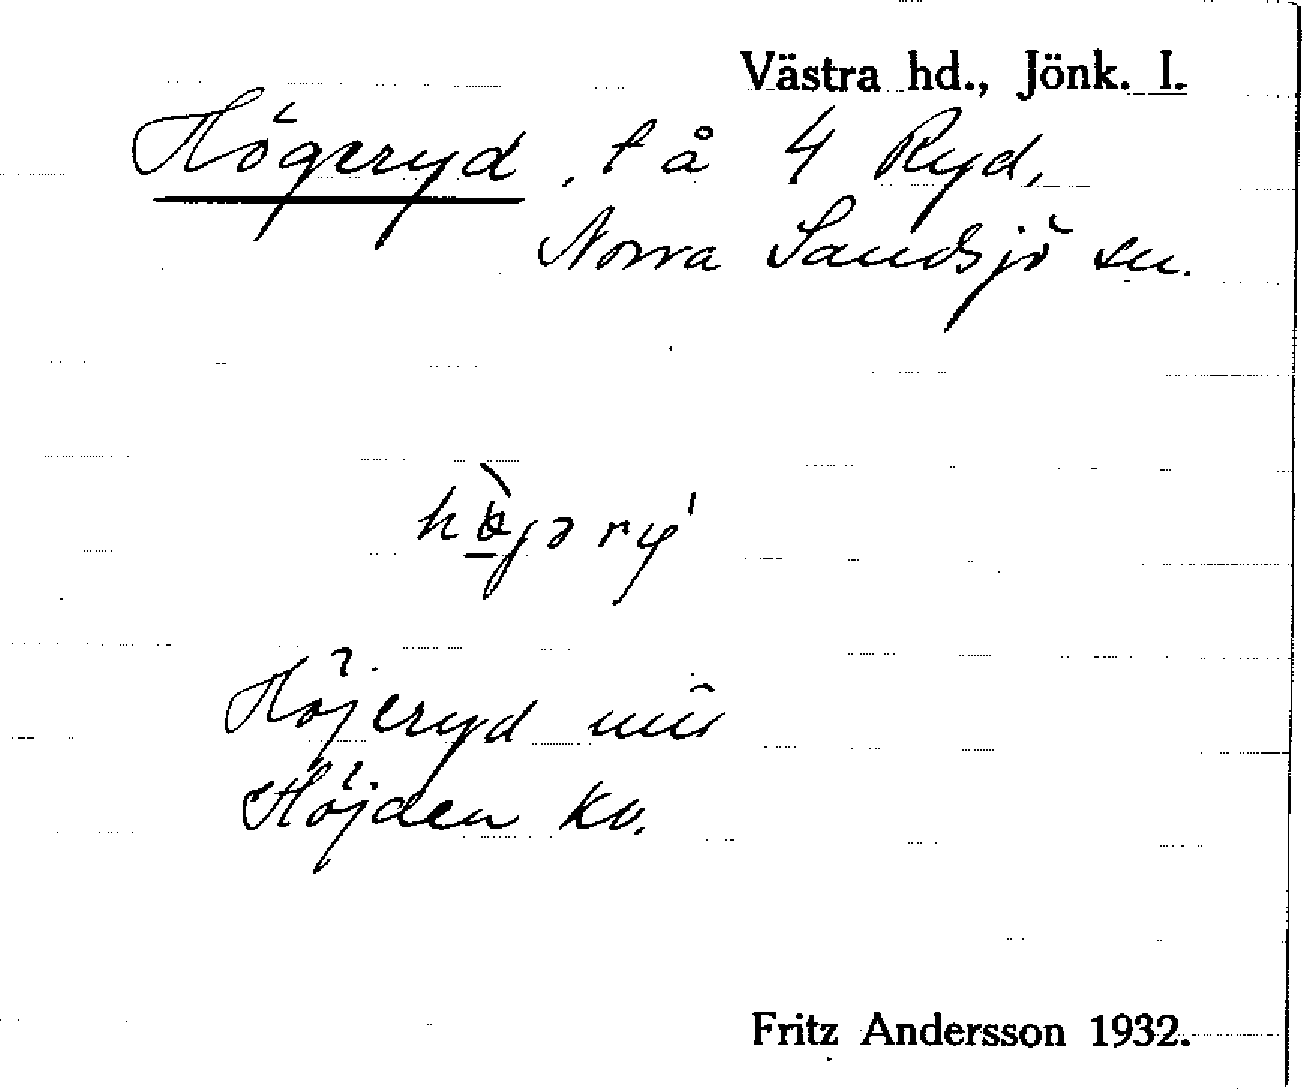 Västra hd., Jönk. l.
Högeryd, t å 4 Ryd,
Norra Sandsjö sn.
Höjeryd
Höjden kv.
Fritz Andersson 1932.